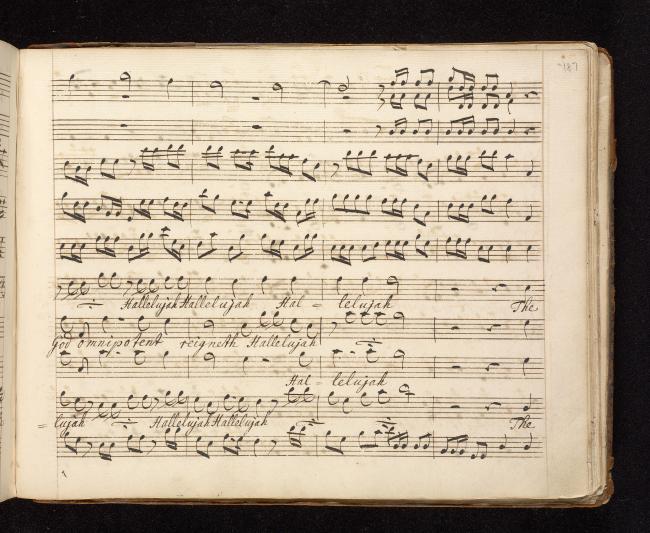 187
Hallelujah Hallelujah Hal = lelujah The
God omnipotent reigneth Hallelujah
Hal = lelujah
= lujah Hallelujah Hallelujah The